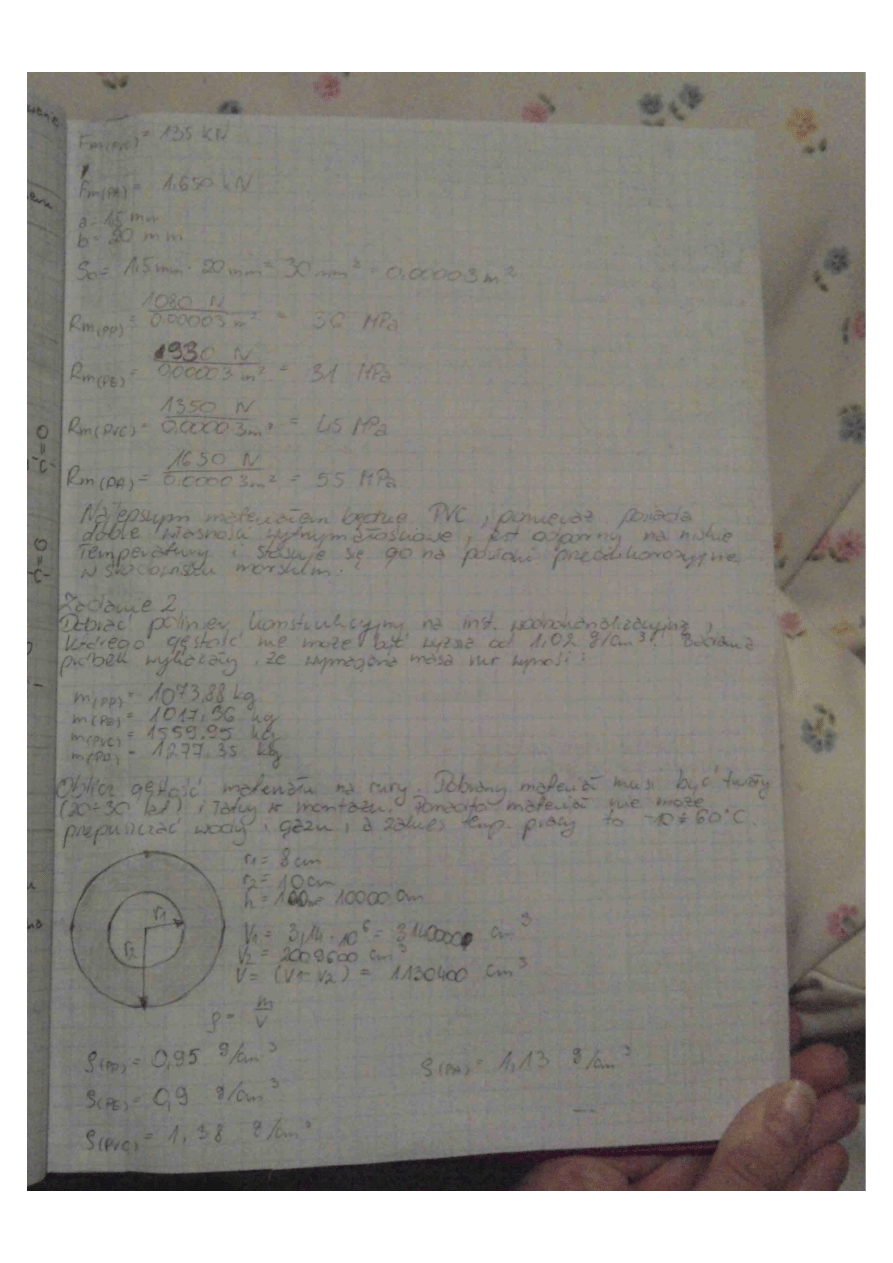 Fm(PVC) = 135 kN
Fm(PA) = 1.650 kN
a = 1,5 mm
b = 20 mm
So = 1,5 mm · 20 mm = 30 mm² = 0.00003 m²
Rm(PP) = 1080 N / 0.00003 m² = 36 MPa
Rm(PE) = 930 N / 0.00003 m² = 31 MPa
Rm(PVC) = 1350 N / 0.00003 m² = 45 MPa
Rm(PA) = 1650 N / 0.00003 m² = 55 MPa
Najlepszym materiałem będzie PVC, ponieważ posiada
dobre własności wytrzymałościowe, jest odporny na niskie
temperatury i stosuje się go na powłoki przeciwkorozyjne
w środowisku morskim.
Zadanie 2
Dobrać polimer konstrukcyjny na inst. wodnokanalizacyjną,
którego gęstość nie może być wyższa od 1,02 g/cm³. Badania
próbek wykazały, że wymagana masa rur wynosi:
m(PP) = 1073,88 kg
m(PE) = 1017,36 kg
m(PVC) = 1559.95 kg
m(PA) = 1277.35 kg
Oblicz gęstość materiału na rury. Dobrany materiał musi być trwały
(20÷30 lat) i łatwy w montażu. Ponadto materiał nie może
przepuszczać wody i gazu, a zakres temp. pracy to -10 ÷ 60°C.
r1 = 8 cm
r2 = 10 cm
h = 100m = 10000 cm
r1
r2
V1 = 3,14 · 10⁶ = 3140000 cm³
V2 = 2009600 cm³
V = (V1 - V2) = 1130400 cm³
ρ = m / V
ρ(PP) = 0,95 g/cm³
ρ(PA) = 1,13 g/cm³
ρ(PE) = 0,9 g/cm³
ρ(PVC) = 1,38 g/cm³